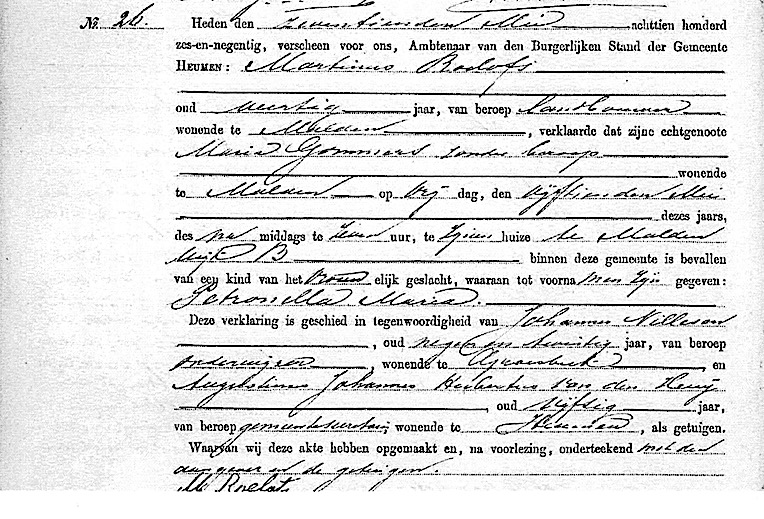 No. 26. Heden den zeventienden Mei achttien honderd
zes-en-negentig, verscheen voor ons, Ambtenaar van den Burgerlijken Stand der Gemeente
HEUMEN: Martinus Roelofs
oud veertig jaar, van beroep landbouwer
wonende te Malden, verklaarde dat zijne echtgenoote
Maria Gommers zonder beroep
wonende
te Malden op Vrij dag, den vijftienden Mei
dezes jaars,
des na middags te zeven uur, te zijnen huize te Malden
Wijk B binnen deze gemeente is bevallen
van een kind van het vrouwelijk geslacht, waaraan tot voornamen zijn gegeven:
Petronella Maria.
Deze verklaring is geschied in tegenwoordigheid van Johannes Nillesen
, oud negen en twintig jaar, van beroep
onderwijzer, wonende te Groesbeek en
Augustinus Johannes Hubertus van den
, oud vijftig jaar,
van beroep gemeentesecretaris, wonende te Heumen, als getuigen.
Waarvan wij deze akte hebben opgemaakt en, na voorlezing, onderteekend met den
aangever en de getuigen.
M. Roelofs